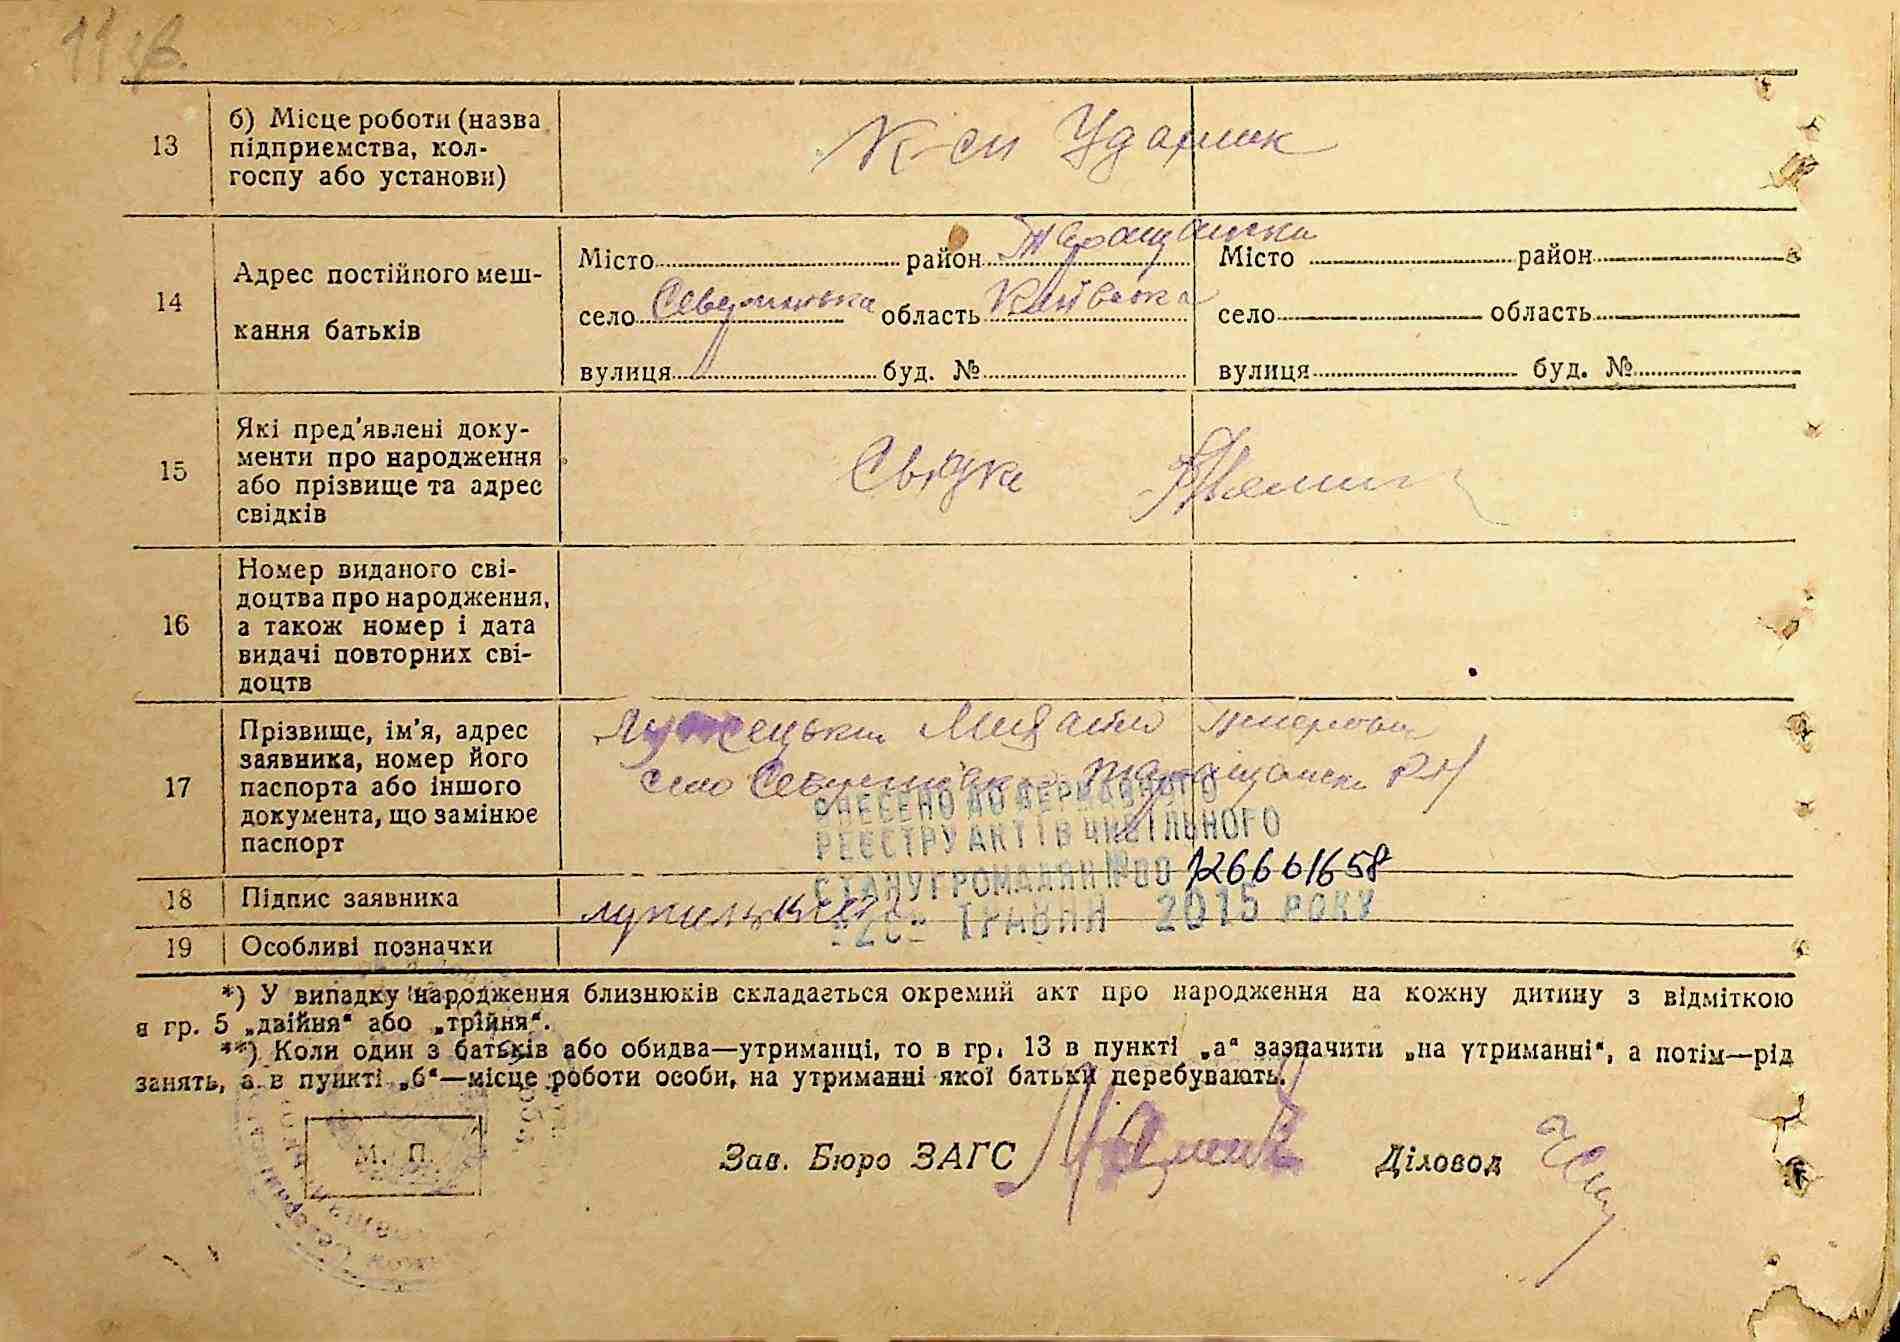 11 зв.
13 б) Місце роботи (назва підприємства, колгоспу або установи) К-сп Ударник
14 Адрес постійного мешкання батьків
Місто район Таращанск Місто район
село Северинівка область Київська село область
вулиця буд. № вулиця буд. №
15 Які пред'явлені документи про народження або прізвище та адрес свідків Свідки
16 Номер виданого свідоцтва про народження, а також номер і дата видачі повторних свідоцтв
17 Прізвище, ім'я, адрес заявника, номер його паспорта або іншого документа, що замінює паспорт
Михайло
село Северинівка Таращанськ р-н
ВНЕСЕНО ДО ДЕРЖАВНОГО
РЕЄСТРУ АКТІВ ЦИВІЛЬНОГО
СТАНУ ГРОМАДЯН №00 126661658
ТРАВНЯ 2015 РОКУ
18 Підпис заявника
19 Особливі позначки
*) У випадку народження близнюків складається окремий акт про народження на кожну дитину з відміткою
в гр. 5 „двійня“ або „трійня“.
**) Коли один з батьків або обидва—утриманці, то в гр. 13 в пункті „а“ зазначити „на утриманні“, а потім—рід
занять, а в пункті „б“—місце роботи особи, на утриманні якої батьки перебувають.
М. П.
Зав. Бюро ЗАГС Діловод